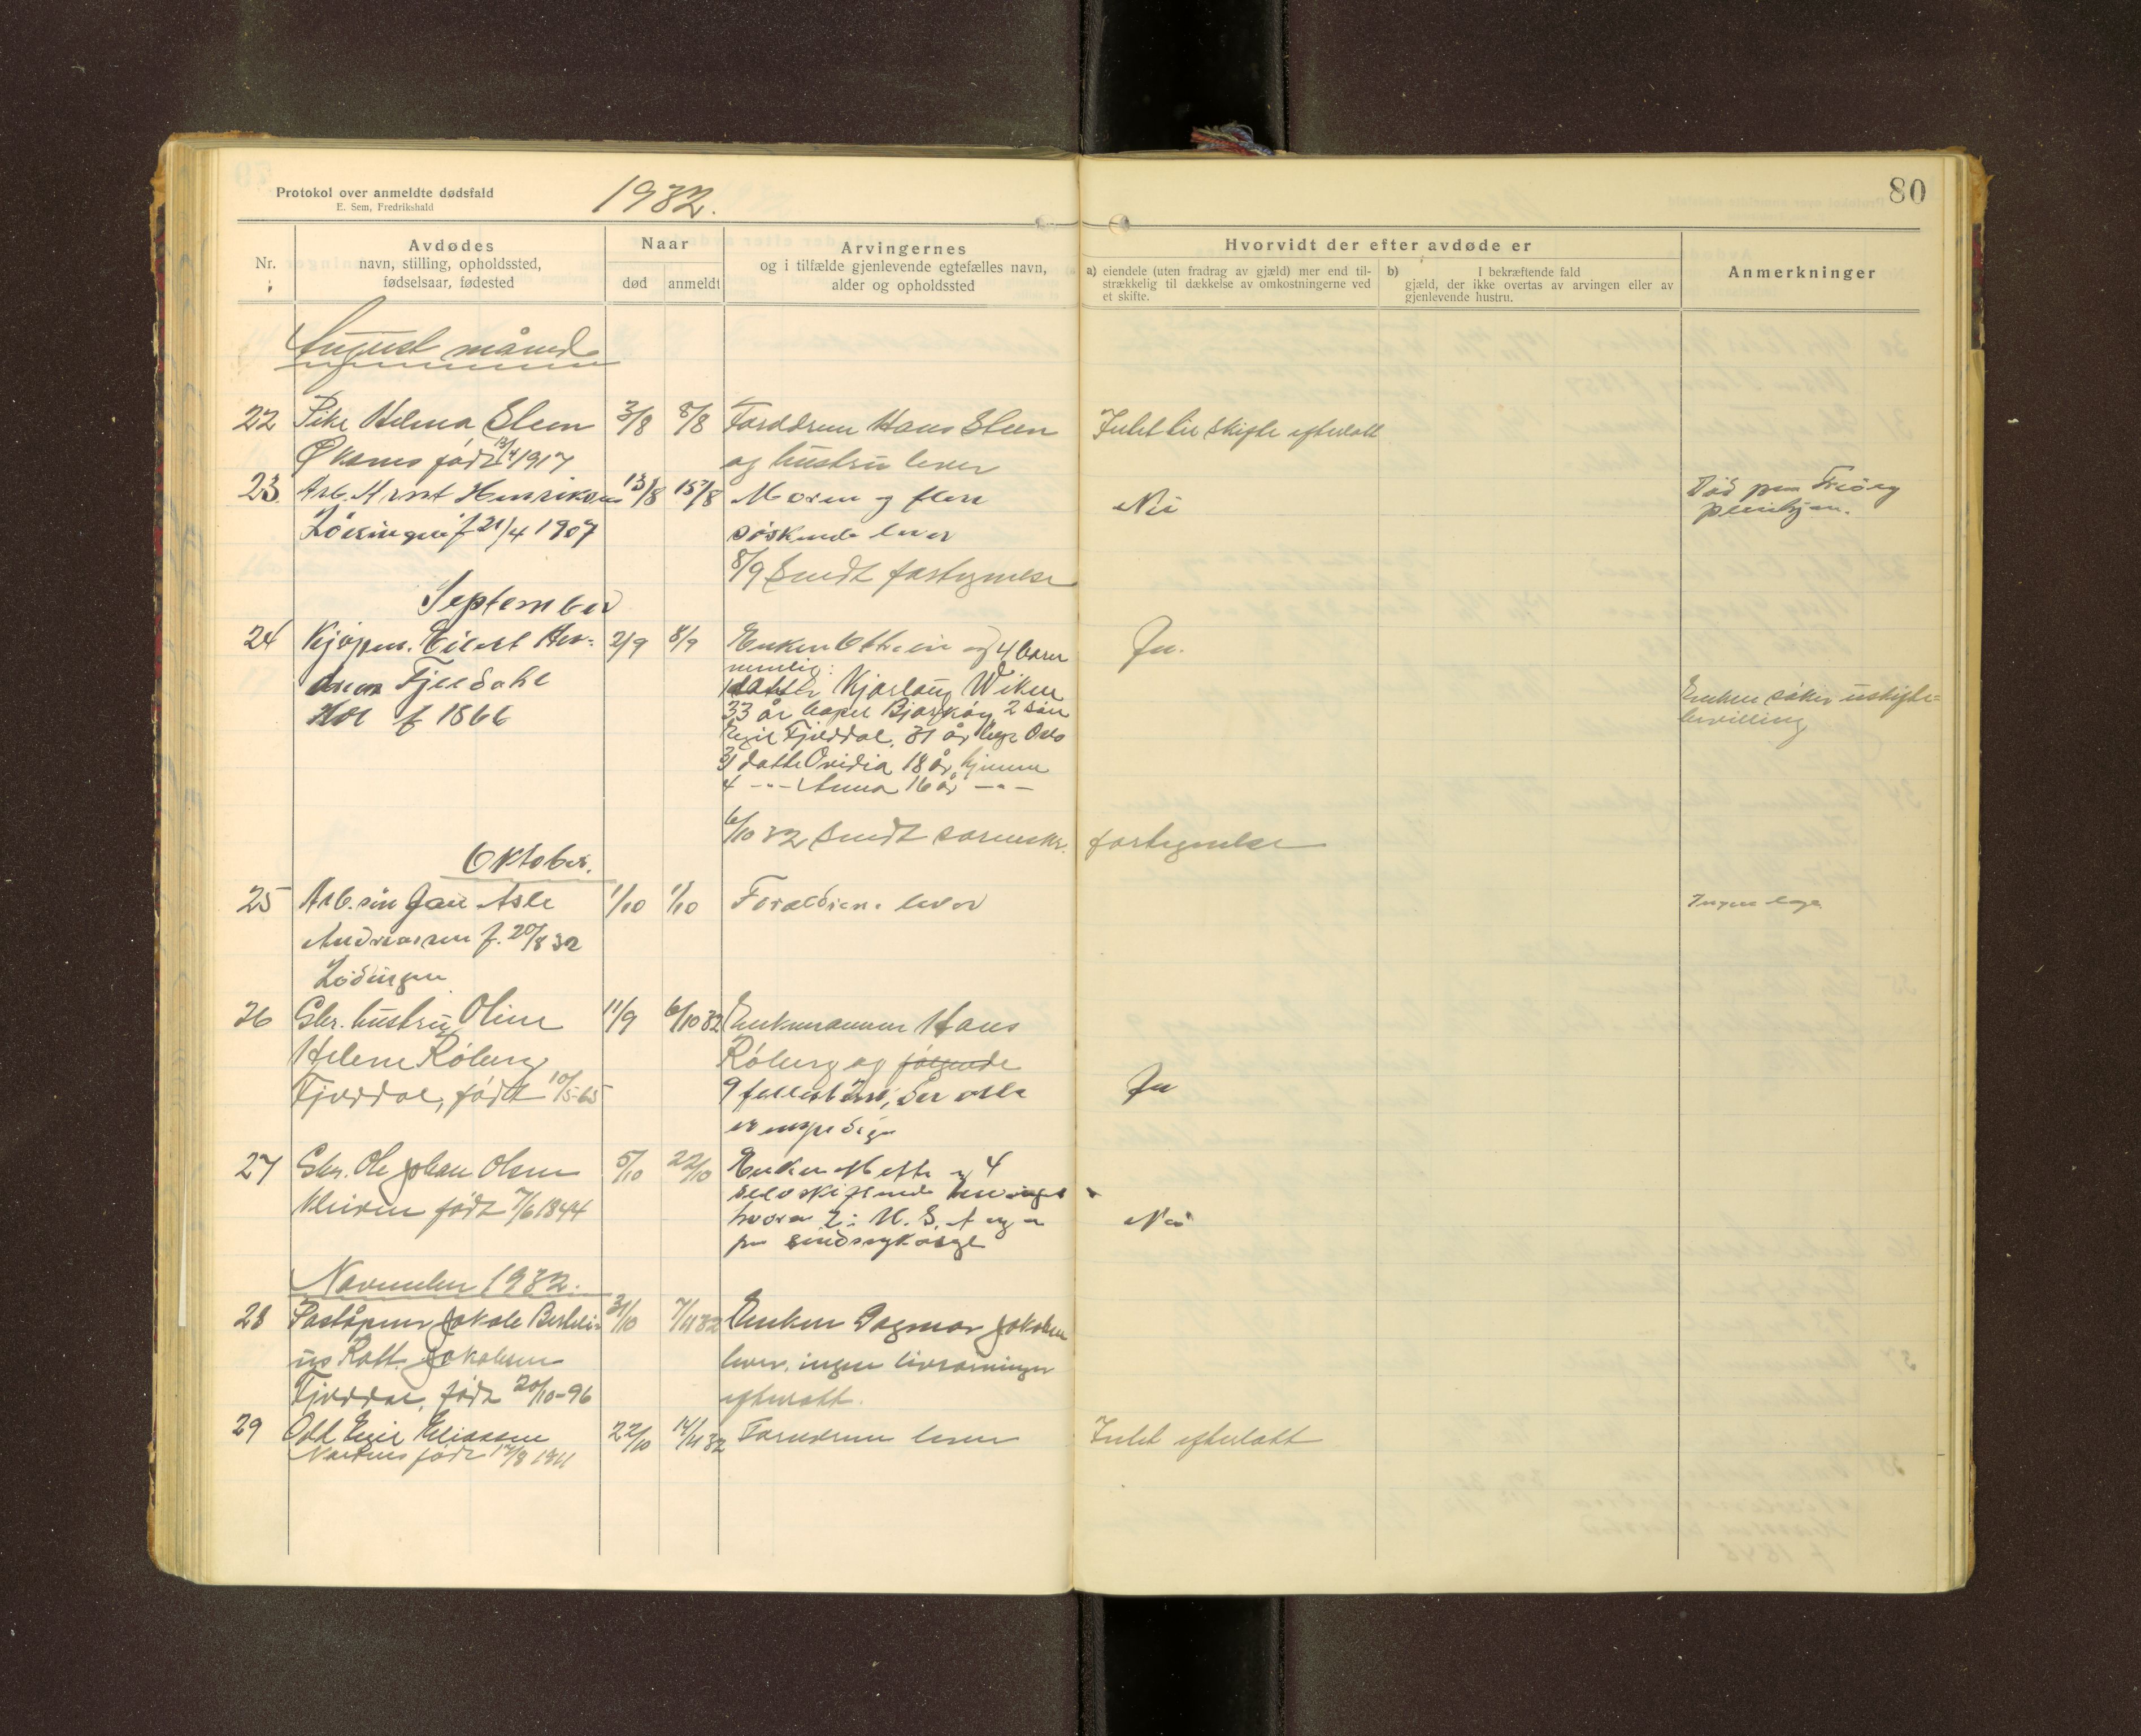 Protokol over anmeldte dødsfald
E. Sem, Fredrikshald
1932.
80
Nr.
Avdødes
navn, stilling, opholdssted,
fødselsaar, fødested
Naar
død
anmeldt
Arvingernes
og i tilfælde gjenlevende egtefælles navn,
alder og opholdssted
Hvorvidt der efter avdøde er
a) eiendele (uten fradrag av gjæld) mer end til-
strækkelig til dækkelse av omkostningerne ved
et skifte.
b) I bekræftende fald
gjæld, der ikke overtas av arvingen eller av
gjenlevende hustru.
Anmerkninger
August måned
22 Pike Helma Steen 3/8 8/8 Foreldrene Hans Steen Intet til skifte efterlatt
født 1917 og hustru lever
23. Arb. Arnt Henriksen 13/8 15/8 Moren og flere Nei
Død paa
pleiehjem.
Lødingen f 21/4 1907 søskende lever
8/9 Sendt fortegnelse
September
24 Kjøpm. Eilert 2/9 8/9 Enken og 4 barn Ja.
nemlig:
Fjeldahl 1 datter Kjærlaug Wiken
Hol f 1866 33 år Bjarkøy 2 søn
Fjelddal, 31 år Oslo
Enken søker uskifte=
bevilling
3 datter Ovidia 18 år, hjemme
4 -"- Anna 16 år -"-
6/10 32 Sendt fortegnelse
Oktober.
25 Arb. søn Jan Asle 1/10 1/10 Forældrene lever
Ingen
Andreassen f. 20/8 32
Lødingen
26 Gbr. hustru Oline 11/9 6/10 32 Enkemannen Hans
Helene Røberg Røberg og følgende
Fjelddal, født 10/5-65 9 fellesbarn, der alle Ja
er myndige
27 Gbr. Ole Johan Olsen 5/10 22/10 Enken og 4
født 7/6 1844 selvskiftende
hvorav 1: Nei
på sindssykeasyl
November 1932.
28 Poståpner Jakob 31/10 7/11 32 Enken Dagmar Jakobsen
Jakobsen lever, ingen livsarvinger
Fjelddal, født 20/10-96 efterlatt.
29 Odd Eliassen 22/10 14/11 32 Foreldrene lever Intet efterlatt
født